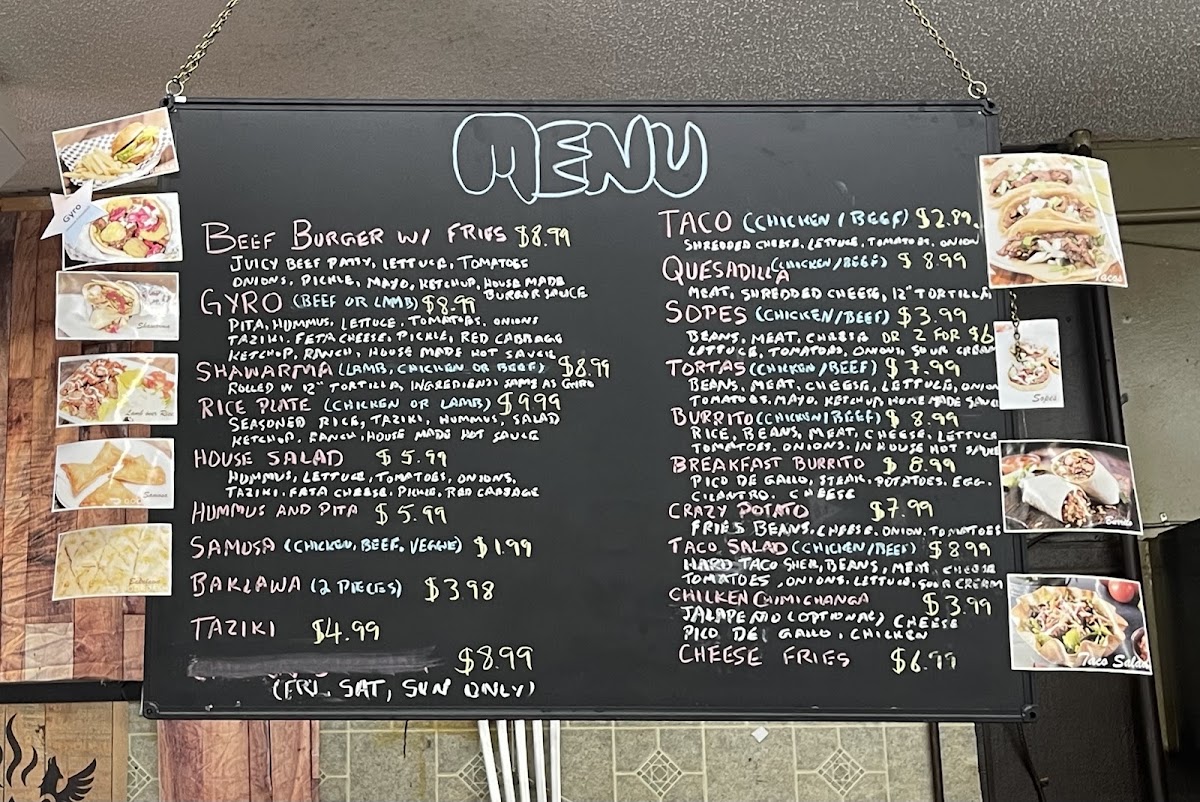 MENU
BEEF BURGER W/ FRIES $8.99
JUICY BEEF PATTY, LETTUCE, TOMATOES
ONIONS, PICKLE, MAYO, KETCHUP, HOUSE MADE
BURGER SAUCE
GYRO (BEEF OR LAMB) $8.99
PITA, HUMMUS, LETTUCE, TOMATOES, ONIONS
TAZIKI, FETA CHEESE, PICKLE, RED CABBAGE
KETCHUP, RANCH, HOUSE MADE HOT SAUCE
SHAWARMA (LAMB, CHICKEN OR BEEF) $8.99
ROLLED IN 12" TORTILLA, INGREDIENTS SAME AS GYRO
RICE PLATE (CHICKEN OR LAMB) $9.99
SEASONED RICE, TAZIKI, HUMMUS, SALAD
KETCHUP, RANCH, HOUSE MADE HOT SAUCE
HOUSE SALAD $5.99
HUMMUS, LETTUCE, TOMATOES, ONIONS,
TAZIKI, FATA CHEESE, PICKLE, RED CABBAGE
HUMMUS AND PITA $5.99
SAMOSA (CHICKEN, BEEF, VEGGIE) $1.99
BAKLAWA (2 PIECES) $3.98
TAZIKI $4.99
$8.99
(FRI, SAT, SUN ONLY)
TACO (CHICKEN/BEEF) $2.89
SHREDDED CHEESE, LETTUCE, TOMATOES, ONION
QUESADILLA (CHICKEN/BEEF) $8.99
MEAT, SHREDDED CHEESE, 12" TORTILLA
SOPES (CHICKEN/BEEF) $3.99
BEANS, MEAT, CHEESE OR 2 FOR $6
LETTUCE, TOMATOES, ONIONS, SOUR CREAM
TORTAS (CHICKEN/BEEF) $7.99
BEANS, MEAT, CHEESE, LETTUCE, ONION
TOMATOES, MAYO, KETCHUP, HOME MADE SAUCE
BURRITO (CHICKEN/BEEF) $8.99
RICE, BEANS, MEAT, CHEESE, LETTUCE
TOMATOES, ONIONS, IN HOUSE HOT SAUCE
BREAKFAST BURRITO $8.99
PICO DE GALLO, STEAK, POTATOES, EGG,
CILANTRO, CHEESE
CRAZY POTATO $7.99
FRIES BEANS, CHEESE, ONION, TOMATOES
TACO SALAD (CHICKEN/BEEF) $8.99
HARD TACO SHELL, BEANS, MEAT, CHEESE
TOMATOES, ONIONS, LETTUCE, SOUR CREAM
CHICKEN CHIMICHANGA $3.99
JALAPENO (OPTIONAL) CHEESE
PICO DEL GALLO, CHICKEN
CHEESE FRIES $6.99
Gyro
Shawarma
Lamb over Rice
Samosa
Baklawa
Tacos
Sopes
Burrito
Taco Salad